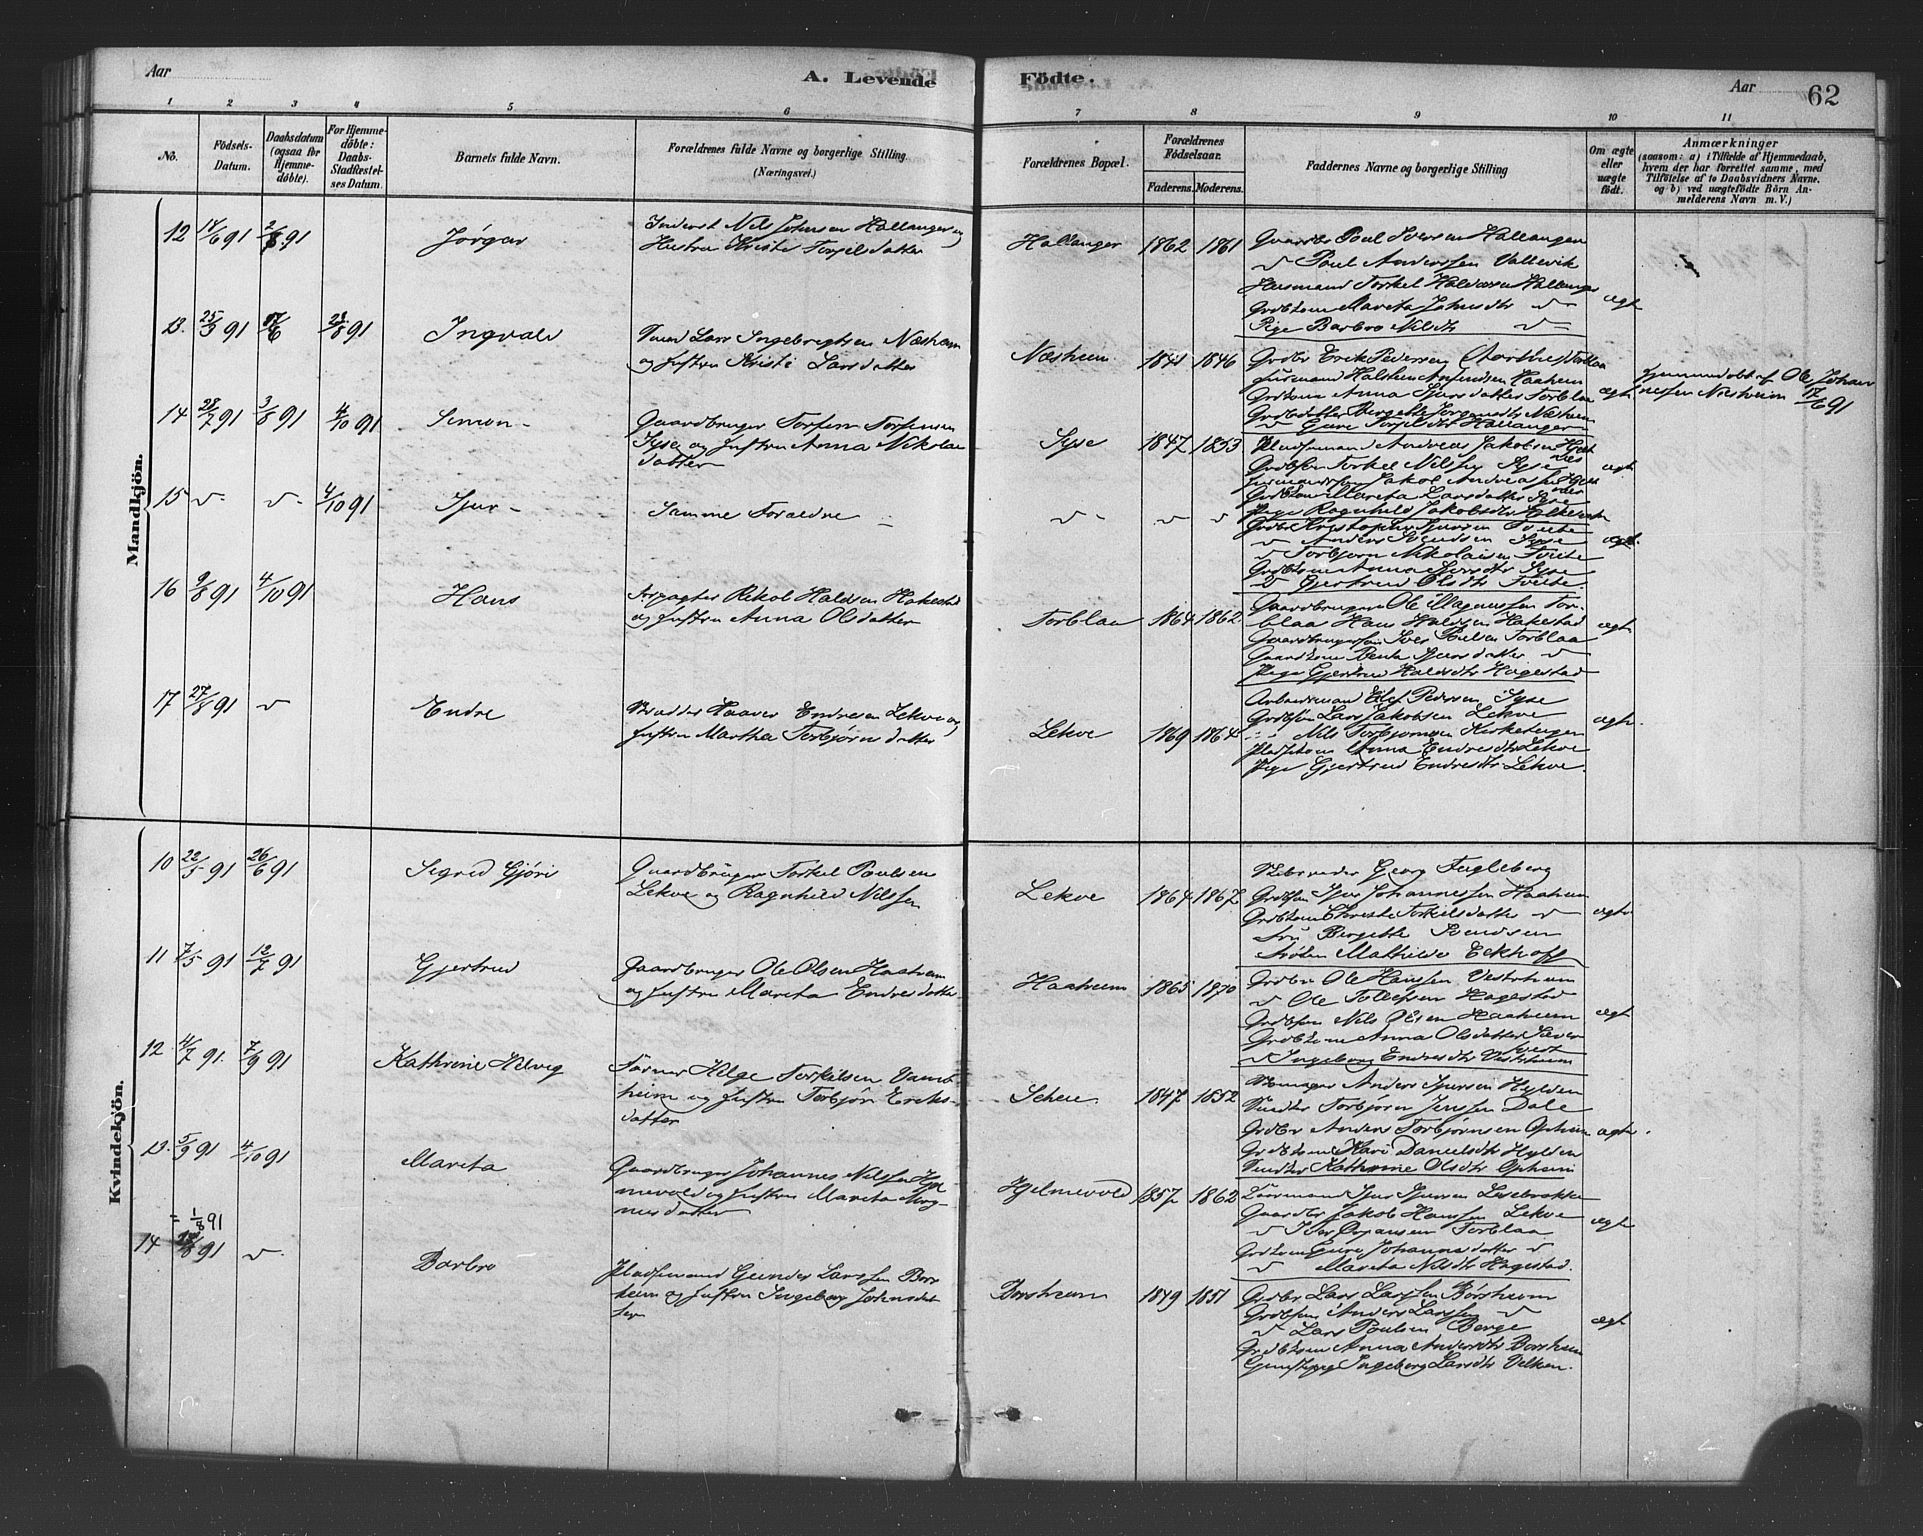 Aar
A. Levende
Födte.
Aar
62
1 2 3 4 5 6 7 8 9 10 11
No.
Födsels-Datum.
Daabsdatum (ogsaa for Hjemme-döbte).
For Hjemme-döbte: Daabs-Stadfæstel-ses Datum.
Barnets fulde Navn.
Forældrenes fulde Navne og borgerlige Stilling (Næringsvei.)
Forældrenes Bopæl.
Forældrenes Födselsaar.
Faderens. Moderens.
Faddernes Navne og borgerlige Stilling
Om ægte eller uægte födt.
Anmærkninger
(saasom: a) i Tilfælde af Hjemmedaab,
hvem der har forrettet samme, med
Tilföielse af to Daabsvidners Navne.
og b) ved uægtefödte Börn An-
melderens Navn m. V.)
Mandkjön.
12 14/6 91 2/8 91
Jørgen
Inderst Nils Johnsen Hallanger og
Hustru Kristi Torgilsdatter
Hallanger 1862 1861
Gaardbr Poul Iversen Hallanger
" Poul Anderssen Vallevik
Husmand Torkel Haldorsen Hallanger
Grdbkone Marita Johnsdtr "
Pige Barbro Nilsdtr "
ægt
13. 25/5 91 17/6 23/8 91
Ingvald
Lars Ingebrigtsen Næsheim
og Hustru Kristi Larsdatter
Næsheim 1841 1846
Grdbr Erik Pedersen
Halsten Amundsen Haaheim
Grdkone Anna Sjursdatter Torblaa
Grdbdatter Bergette Jørgensdtr Næsheim
" Guro Torgilsdtr Hallanger
ægt
Hjemmedøbt af Ole Johan-
nessen Næsheim 17/6 91
14 28/7 91 3/8 91 4/10 91
Simon
Gaardbruger Torfinn Torfinsen
Syse og Hustru Anna Nikolai
datter
Syse 1847 1853
Pladsmand Andreas Jakobsen
Grdbsøn Torkel Nilssen Syse
Jakob Andreassen
Grdbkone Marita Larsdatter Syse
Pige Ragnhild Jakobsdtr
ægt
15 " " 4/10 91
Sjur
Samme Foraldre
" " "
Grdbr Kristopher Sjursen Tveite
" Anders Svendsen Syse
" Torbjørn Nikolaisen Tveite
Grdbkone Anna Iversdtr Syse
" Gjertrud Olsdtr Tveite
ægt
16 9/8 91 4/10 91
Hans
Forpagter Rikol Haldsen Hakestad
og Hustru Anna Olsdatter
Torblaa 1864 1862
Gaardbruger Ole Magnussen Tor-
blaa Hans Haldsen Hakestad
Gaardbrugersøn Iver Poulsen Torblaa
Gaardkone Brita Sjursdatter "
Pige Gjertrud Haldsdtr Hagestad
ægt
17 27/8 91 "
Endre
Haaver Endresen Lekve og
Hustru Martha Torbjørnsdatter
Lekve 1869 1864
Arbeidsmand Elef Pedersen Syse
Grdbsøn Lars Jakobsen Lekve
" Nils Torbjørnsen Kirketeigen
Pladskone Anna Endresdtr Lekve
Pige Gjertrud Endresdtr Lekve.
ægt
Kvindekjön.
10 22/5 91 26/6 91
Sigrid Gjøri
Gaardbruger Torkel Poulsen
Lekve og Ragnhild Nilssen
Lekve 1864 1867
Georg Fugleberg
Grdbsøn Sjur Johannessen Haaheim
Grdbkone Christi Torkelsdatter "
Fru Bergette Svendsen
Frøken Mathilde Eckhoff
ægt
11 7/5 91 12/7 91
Gjertrud
Gaardbruger Ole Olsen Haaheim
og Hustru Marita Endresdatter
Haaheim 1865 1870
Grdbr Ole Hanssen Vestrheim
" Ole Tollefsen Hagestad
Grdbsøn Nils Olsen Haaheim
Grdbkone Anna Olsdatter
" Ingeborg Endresdtr Vestrheim
ægt
12. 4/7 91. 7/9 91
Kathrine Helvig
Farver Helge Torkilsen Vamb-
heim og Hustru Torbjør Eriks-
datter
Scheie 1847 1852
Anders Sjursen Hylden
Torbjørn Jenssen Dale
Grdbr Anders Torbjørnsen Opheim
Grdbkone Kari Danielsdtr Hylden
Kathrine Olsdtr Opheim
ægt
13. 5/9 91 4/10 91
Marita
Gaardbruger Johannes Nilssen Hjel-
mevold og Hustru Marita Mag-
nesdatter
Hjelmevold 1857 1862
Sjur Sjursen
Gaardbr Jakob Hanssen Lekve
" Torblaa
Grdkone Guro Johannesdatter "
" Marita Nilsdtr Hagestad.
ægt
= 1/8 91
14 /8 91 "
Barbro
Pladsmand Gunder Larssen Bors-
heim og Hustru Ingeborg Johnsdat-
ter
Borsheim 1849 1851
Grdbr Lars Larssen Børsheim
Grdbsøn Anders Larssen "
" Lars Poulsen Berge
Grdbkone Anna Andersdtr Borsheim
Ingeborg Larsdtr Velken.
ægt